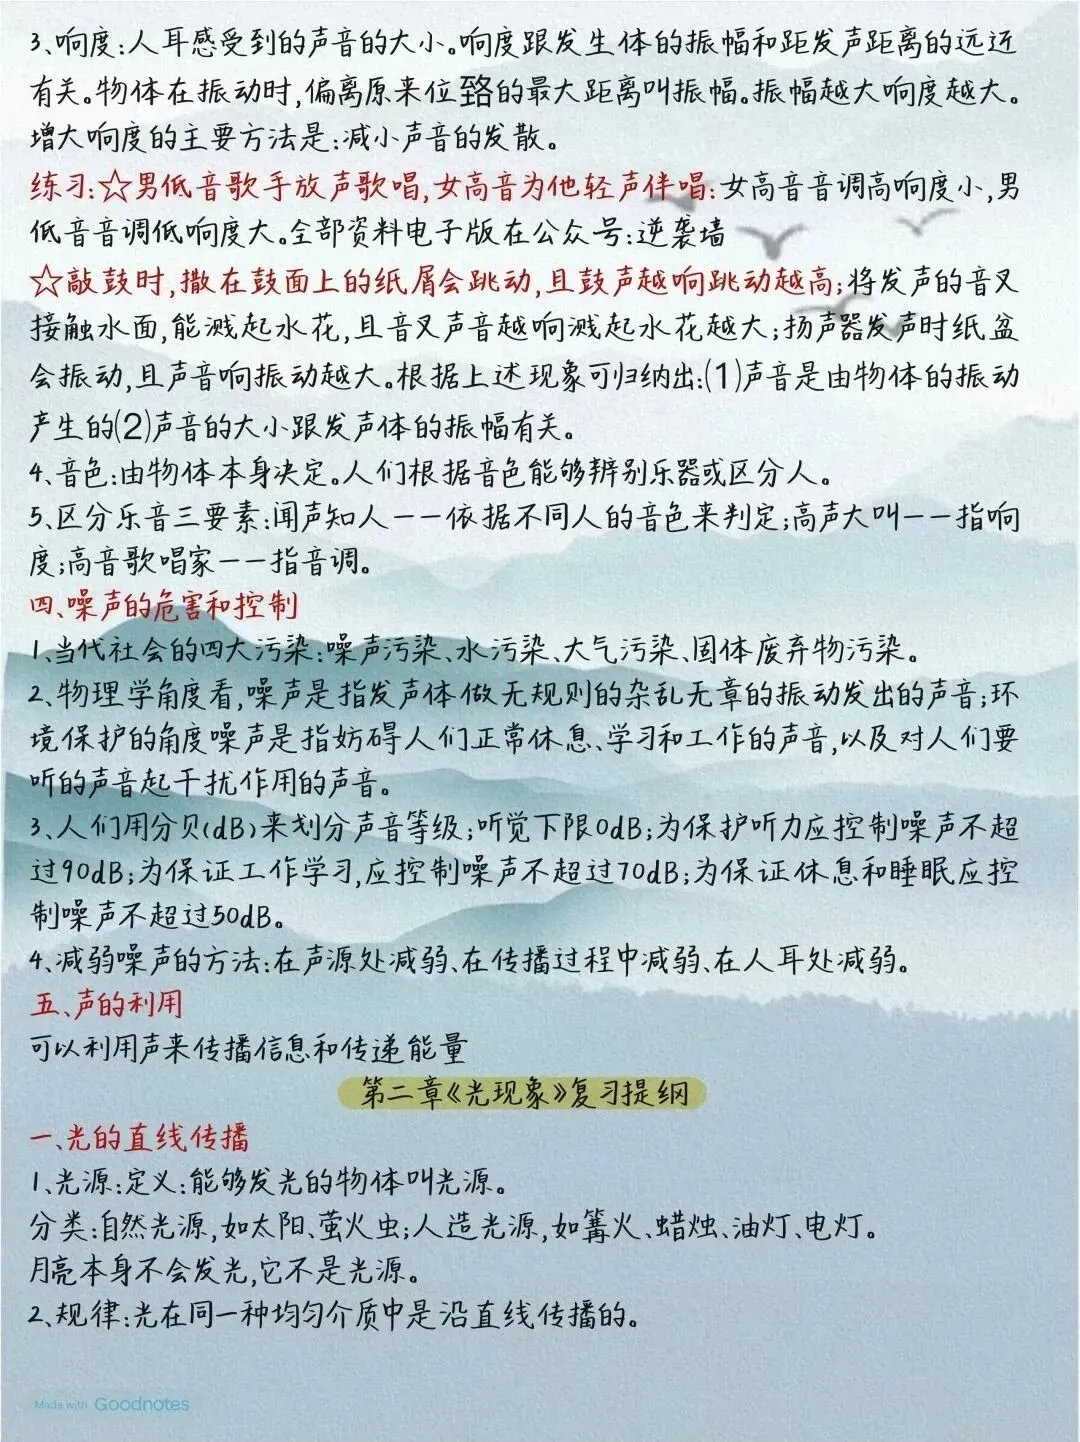 3、响度:人耳感受到的声音的大小。响度跟发生体的振幅和距发声距离的远近
有关。物体在振动时,偏离原来位臵的最大距离叫振幅。振幅越大响度越大。
增大响度的主要方法是:减小声音的发散。
练习:☆男低音歌手放声歌唱,女高音为他轻声伴唱:女高音音调高响度小,男
低音音调低响度大。全部资料电子版在公众号:逆袭墙
☆敲鼓时,撒在鼓面上的纸屑会跳动,且鼓声越响跳动越高;将发声的音叉
接触水面,能溅起水花,且音叉声音越响溅起水花越大;扬声器发声时纸盆
会振动,且声音响振动越大。根据上述现象可归纳出:(1)声音是由物体的振动
产生的(2)声音的大小跟发声体的振幅有关。
4、音色:由物体本身决定。人们根据音色能够辨别乐器或区分人。
5、区分乐音三要素:闻声知人——依据不同人的音色来判定;高声大叫——指响
度;高音歌唱家——指音调。
四、噪声的危害和控制
1、当代社会的四大污染:噪声污染、水污染、大气污染、固体废弃物污染。
2、物理学角度看,噪声是指发声体做无规则的杂乱无章的振动发出的声音;环
境保护的角度噪声是指妨碍人们正常休息、学习和工作的声音,以及对人们要
听的声音起干扰作用的声音。
3、人们用分贝(dB)来划分声音等级;听觉下限0dB;为保护听力应控制噪声不超
过90dB;为保证工作学习,应控制噪声不超过70dB;为保证休息和睡眠应控
制噪声不超过50dB。
4、减弱噪声的方法:在声源处减弱、在传播过程中减弱、在人耳处减弱。
五、声的利用
可以利用声来传播信息和传递能量
第二章《光现象》复习提纲
一、光的直线传播
1、光源:定义:能够发光的物体叫光源。
分类:自然光源,如太阳、萤火虫;人造光源,如篝火、蜡烛、油灯、电灯。
月亮本身不会发光,它不是光源。
2、规律:光在同一种均匀介质中是沿直线传播的。
Made with Goodnotes